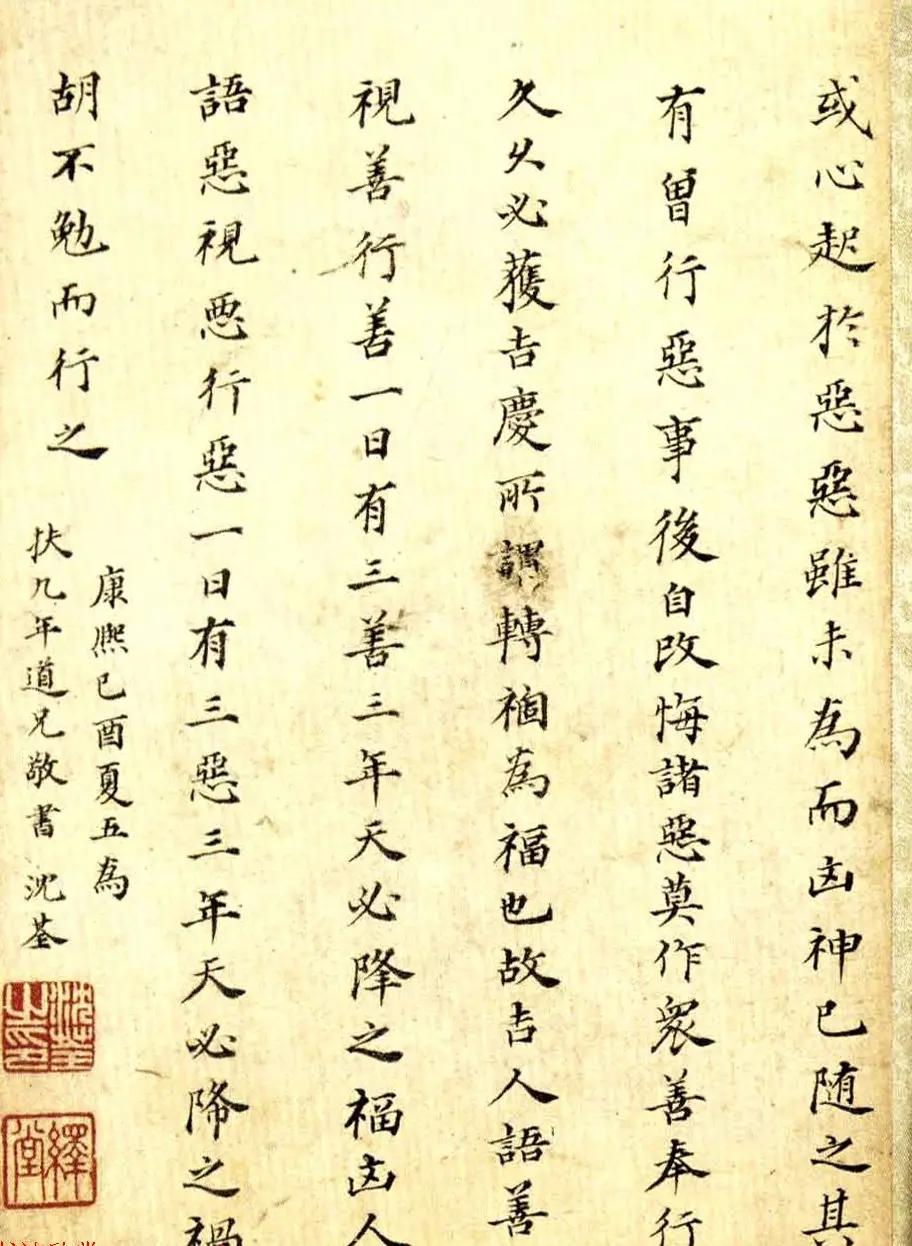 或心起於惡惡雖未為而凶神已随之其
有曾行惡事後自改悔諸惡莫作衆善奉行
久久必獲吉慶所謂轉禍為福也故吉人語善
視善行善一日有三善三年天必降之福凶人
語惡視惡行惡一日有三惡三年天必降之禍
胡不勉而行之
康熙己酉夏五為
扶九年道兄敬書 沈荃
沈荃之印
繹堂